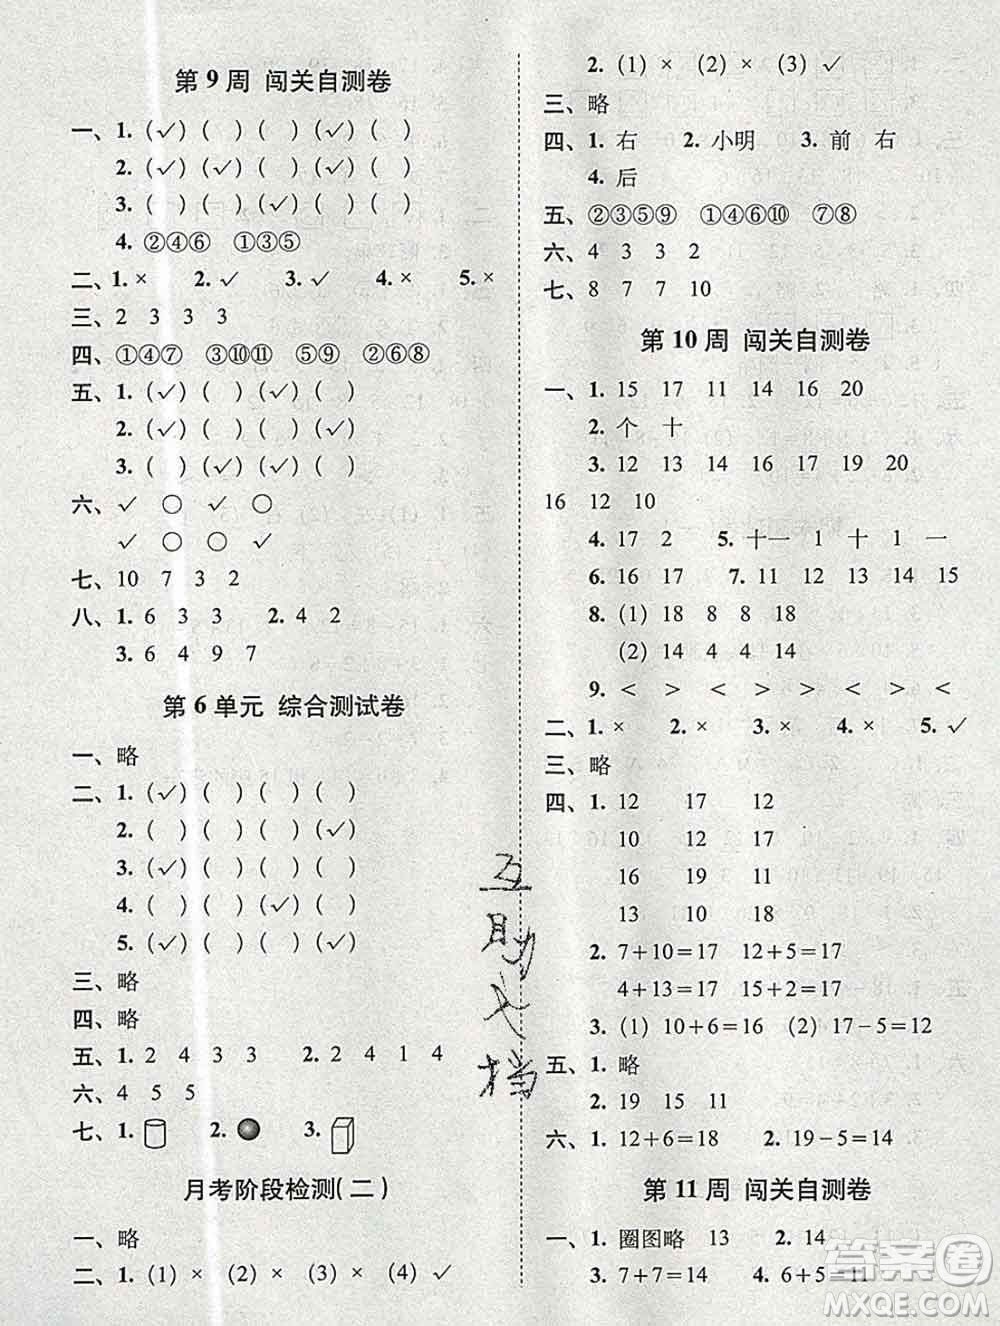 第 9 周 闯关自测卷
一、1. (✓) ( ) ( ) (✓) ( )
2. (✓) (✓) ( ) (✓) ( )
3. ( ) ( ) (✓) ( ) ( )
4. ②④⑥ ①③⑤
二、1. × 2. ✓ 3. ✓ 4. × 5. ×
三、2 3 3 3
四、①④⑦ ③⑩⑪ ⑤⑨ ②⑥⑧
五、1. (✓) ( ) (✓) ( )
2. (✓) ( ) ( ) (✓)
3. ( ) (✓) (✓) ( )
六、✓ ○ ✓ ○
✓ ○ ○ ✓
七、10 7 3 2
八、1. 6 3 3 2. 4 2
3. 6 4 9 7
第 6 单元 综合测试卷
一、略
二、1. (✓) ( ) ( ) ( )
2. ( ) ( ) ( ) (✓)
3. (✓) ( ) ( ) ( )
4. ( ) ( ) (✓) ( )
5. (✓) ( ) ( ) (✓)
三、略
四、略
五、1. 2 4 3 3 2. 2 4 1 4
六、4 5 5
七、1. 2. 3.
月考阶段检测(二)
一、略
二、1. (1) × (2) × (3) × (4) ✓
2. (1) × (2) × (3) ✓
三、略
四、1. 右 2. 小明 3. 前 右
4. 后
五、②③⑤⑨ ①④⑥⑩ ⑦⑧
六、4 3 3 2
七、8 7 7 10
第 10 周 闯关自测卷
一、1. 15 17 11 14 16 20
2. 个 十
3. 12 13 14 16 17 19 20
16 12 10
4. 17 2 5. 十一 1 十 1 一
6. 16 17 7. 11 12 13 14 15
8. (1) 18 8 8 18
(2) 14 4 4 14
9. < > < > > > > > <
二、1. × 2. × 3. × 4. × 5. ✓
三、略
四、1. 12 17 12
10 12 17
16 19 11
13 10 18
2. 7+10=17 12+5=17
4+13=17 17=17
3. (1) 10+6=16 (2) 17-5=12
五、1. 略
2. 19 15 11
六、1. 12+6=18 2. 19-5=14
第 11 周 闯关自测卷
一、1. 圈图略 13 2. 14
3. 7+7=14 4. 6+5=11
互助文档
答案圈
MXQE.COM